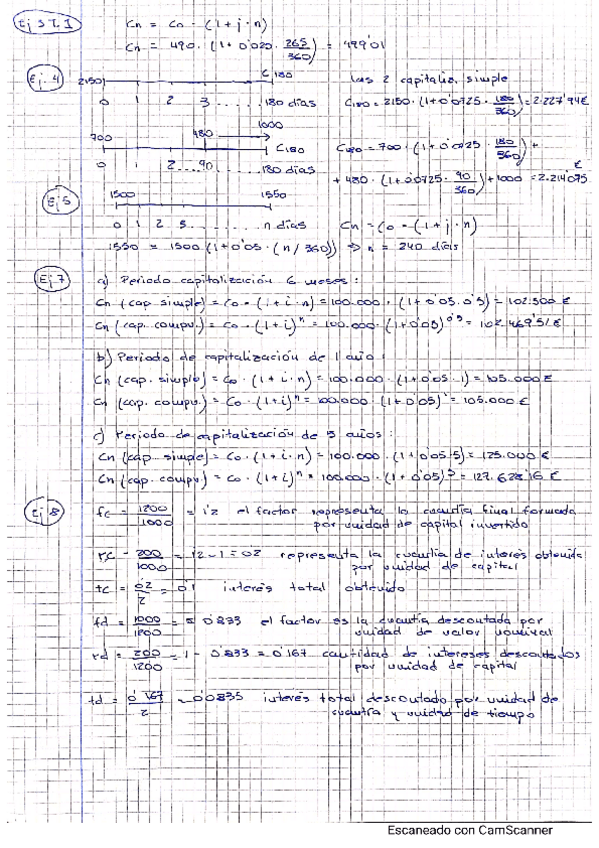 Ej 3 T.1 Cn = Co · (1 + j · n)
Cn = 490 · (1 + 0'025 · 265/360) = 499'01
Ej. 4 2150 C180 Las 2 capitaliz. simple
0 1 2 3 ...... 180 días C180 = 2150 · (1 + 0'0725 · 180/360) = 2.227'94€
700 480 1000 C180 C180 = 700 · (1 + 0'0725 · 180/360) +
0 1 2 .... 90 ..... 180 días + 480 · (1 + 0'0725 · 90/360) + 1000 = 2.214'075 €
Ej 5 1500 1550
0 1 2 3 ...... n días Cn = Co · (1 + j · n)
1550 = 1500 (1 + 0'05 · (n/360)) ⇒ n = 240 días
Ej 7 a) Periodo capitalización 6 meses:
Cn (cap. simple) = Co · (1 + i · n) = 100.000 · (1 + 0'05 · 0'5) = 102.500 €
Cn (cap. compu.) = Co · (1 + i)ⁿ = 100.000 · (1 + 0'05)^0'5 = 102.469'51 €
b) Periodo de capitalización de 1 año:
Cn (cap. simple) = Co · (1 + i · n) = 100.000 · (1 + 0'05 · 1) = 105.000 €
Cn (cap. compu.) = Co · (1 + i)ⁿ = 100.000 · (1 + 0'05)¹ = 105.000 €
c) Periodo de capitalización de 5 años:
Cn (cap. simple) = Co · (1 + i · n) = 100.000 · (1 + 0'05 · 5) = 125.000 €
Cn (cap. compu) = Co · (1 + i)ⁿ = 100.000 · (1 + 0'05)⁵ = 127.628'16 €
Ej 8 fc = 1200/1000 = 1'2 el factor representa la cuantía final formada
por unidad de capital invertido
rc = 200/1000 = 1'2 - 1 = 0'2 representa la cuantía de interés obtenida
por unidad de capital
tc = 0'2/2 = 0'1 interés total obtenido
fd = 1000/1200 = 0'833 el factor es la cuantía descontada por
unidad de valor nominal
rd = 200/1200 = 1 - 0'833 = 0'167 cantidad de intereses descontados
por unidad de capital
td = 0'167/2 = 0'0835 interés total descontado por unidad de
cuantía y unidad de tiempo
Escaneado con CamScanner